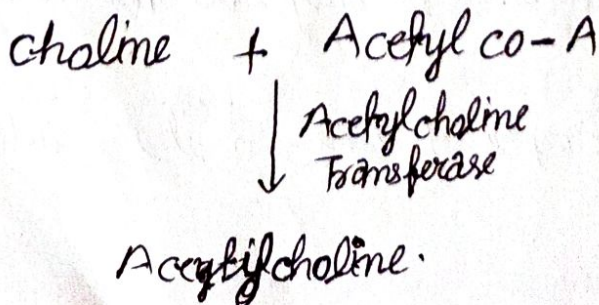 choline + Acetyl co-A
Acetylcholine
Transferase
Acetylcholine.